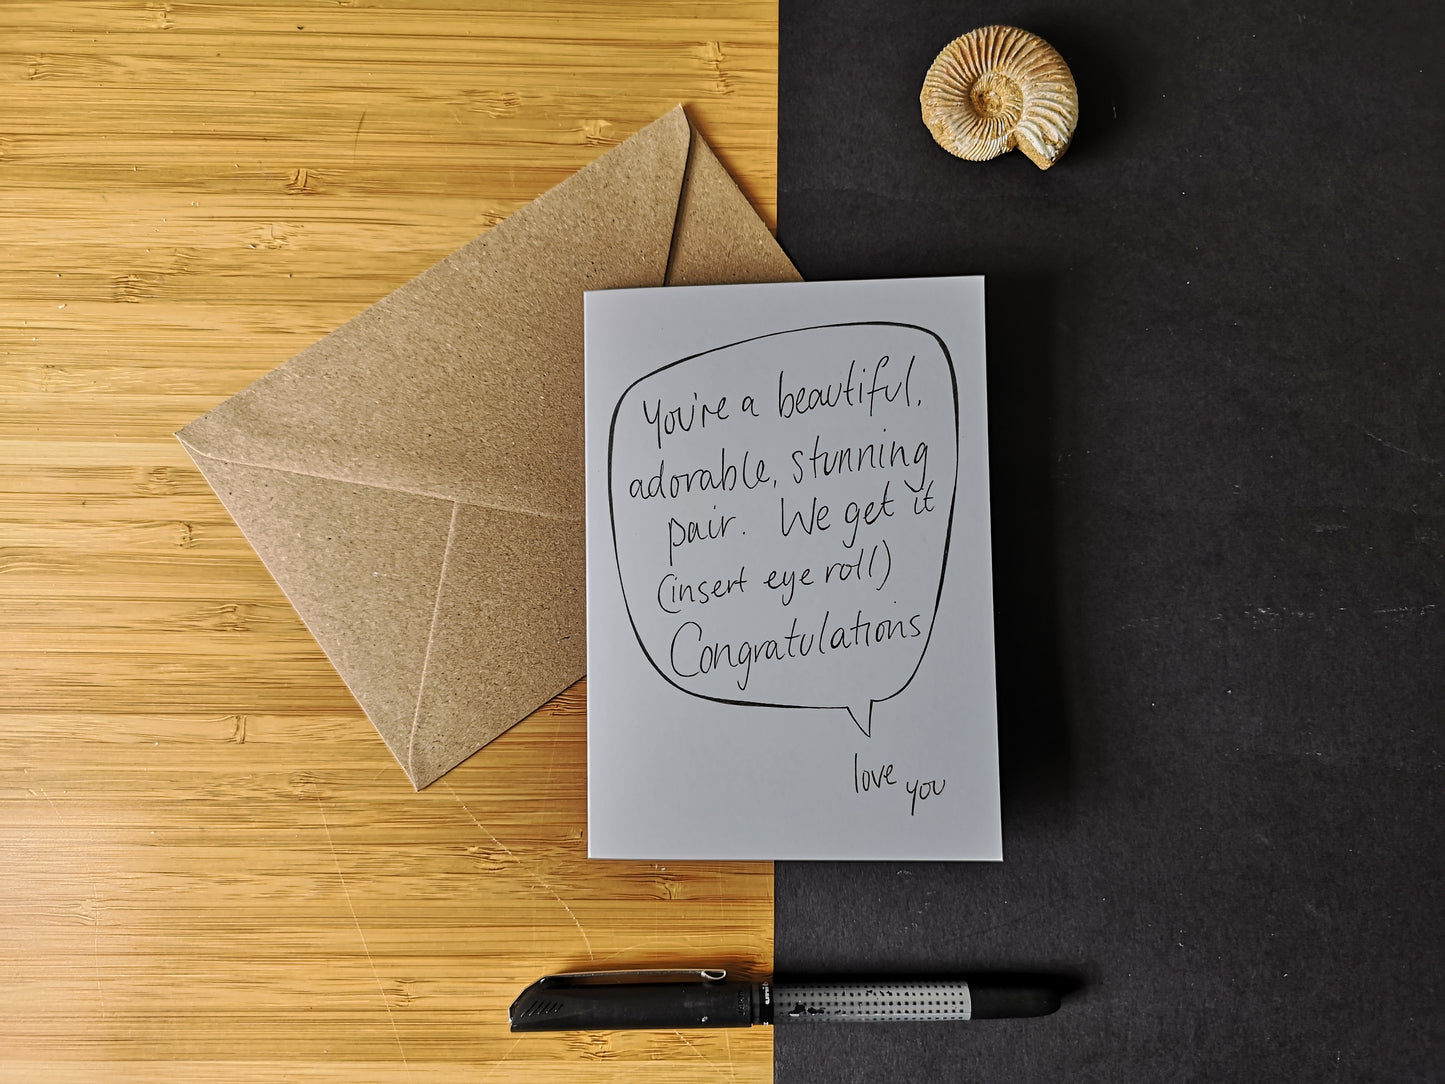 You're a beautiful,
adorable, stunning
pair. We get it
(insert eye roll)
Congratulations
love you